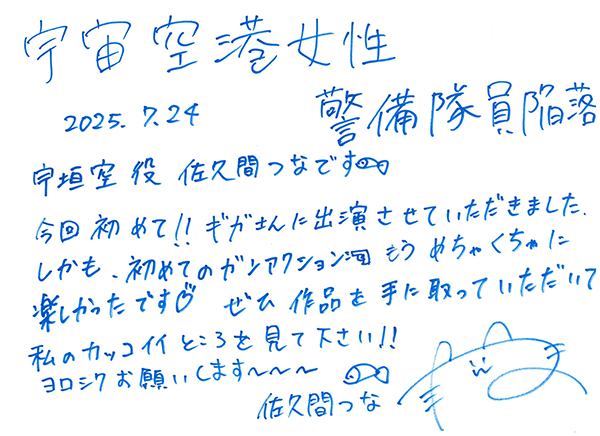 宇宙空港女性
警備隊員陥落
2025.7.24
宇垣空役 佐久間つなです
今回初めて!! ギガさんに出演させていただきました。
しかも、初めてのガンアクション もうめちゃくちゃに
楽しかったです♡ ぜひ 作品を手に取っていただいて
私のカッコイイところを見て下さい!!
ヨロシクお願いします〜〜〜
佐久間つな